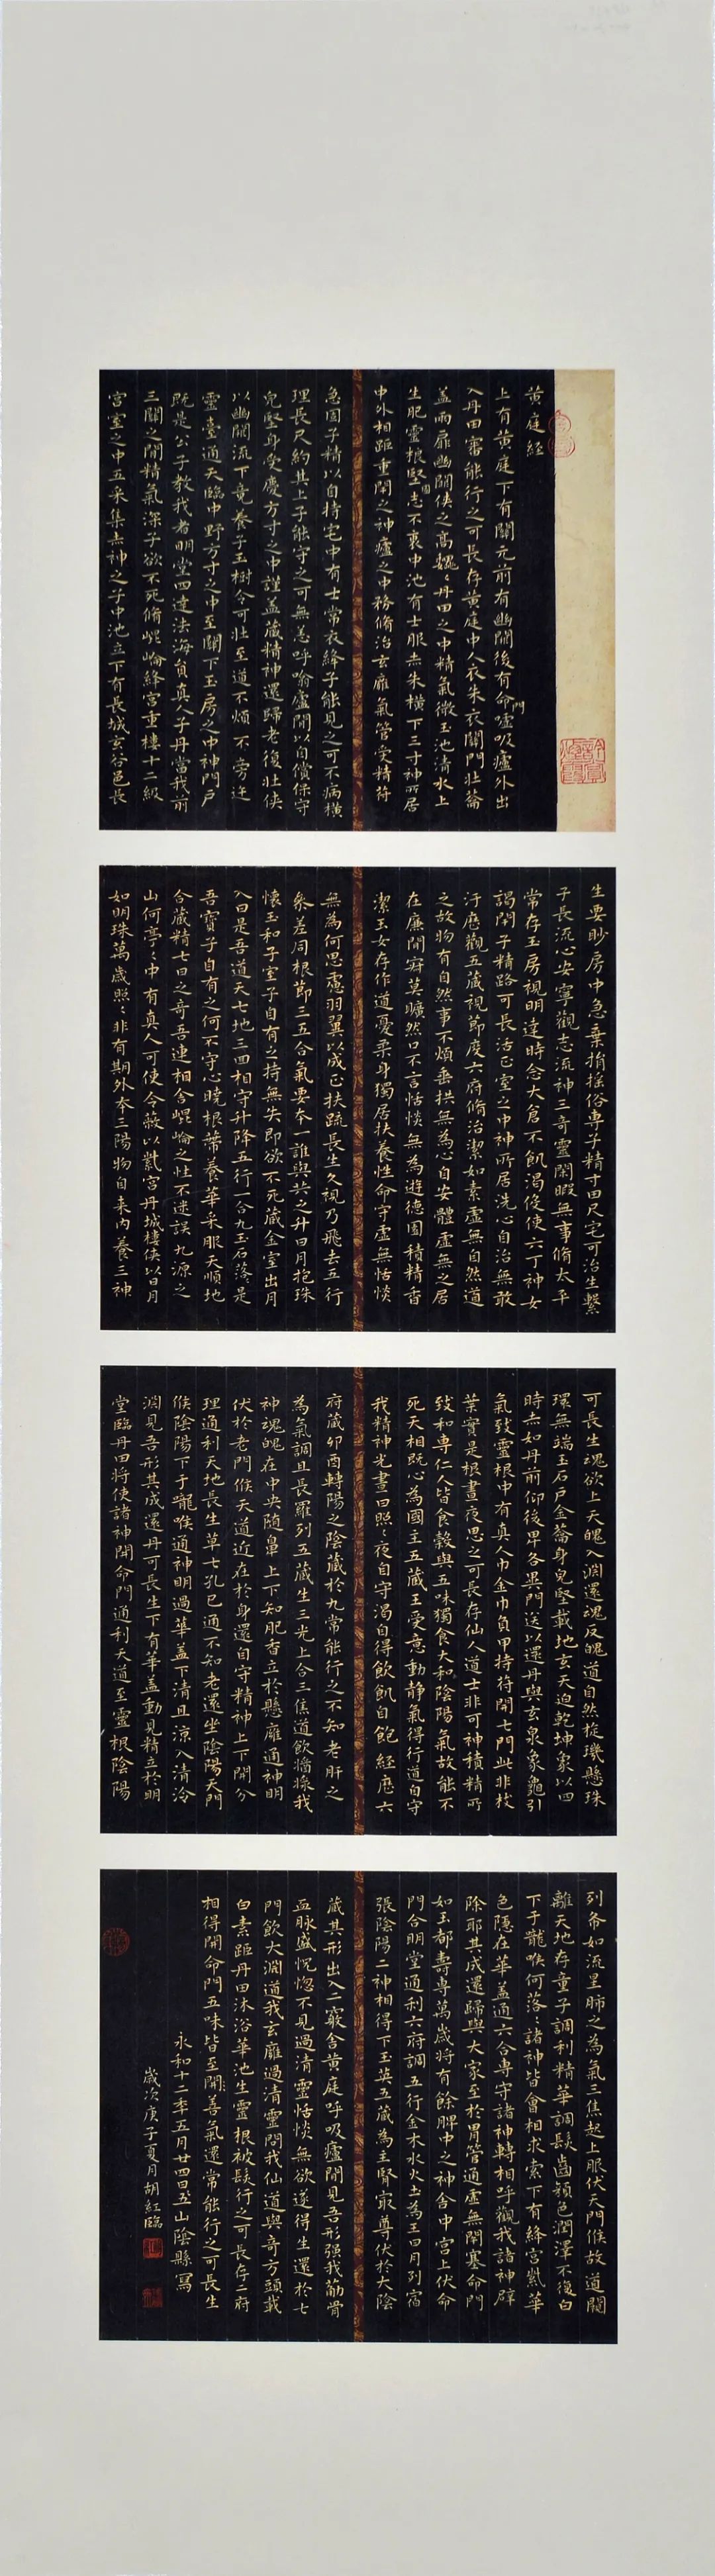 黃庭經
上有黃庭下有關元前有幽闕後有命門噓吸廬外出
入丹田審能行之可長存黃庭中人衣朱衣關門壯籥
蓋兩扉幽闕俠之高巍巍丹田之中精氣微玉池清水上
生肥靈根堅志不衰中池有士服赤朱橫下三寸神所居
中外相距重閉之神廬之中務脩治玄廱氣管受精符
急固子精以自持宅中有士常衣絳子能見之可不病橫
理長尺約其上子能守之可無恙呼噏廬間以自償保守
皃堅身受慶方寸之中謹蓋藏精神還歸老復壯俠
以幽闕流下竟養子玉樹令可壯至道不煩不旁迕
靈臺通天臨中野方寸之中至關下玉房之中神門戶
既是公子教我者明堂四達法海員真人子丹當我前
三關之間精氣深子欲不死脩崐崘絳宮重樓十二級
宮室之中五采集赤神之子中池立下有長城玄谷邑長
生要眇房中急棄捐搖俗専子精寸田尺宅可治生繫
子長流心安寧觀志流神三奇靈閑暇無事脩太平
常存玉房視明達時念大倉不飢渴役使六丁神女
謁閉子精路可長活正室之中神所居洗心自治無敢
汙歷觀五藏視節度六府脩治潔如素虛無自然道
之故物有自然事不煩垂拱無為心自安體虛無之居
在廉間寂莫曠然口不言恬惔無為遊德園積精香
潔玉女存作道憂柔身獨居扶養性命守虛無恬惔
無為何思慮羽翼以成正扶疏長生久視乃飛去五行
參差同根節三五合氣要本一誰與共之升日月抱珠
懷玉和子室子自有之持無失即欲不死藏金室出月
入日是吾道天七地三回相守升降五行一合九玉石落落是
吾寶子自有之何不守心曉根蒂養華采服天順地
合藏精七日之奇吾連相舍崐崘之性不迷誤九源之
山何亭亭中有真人可使令蔽以紫宮丹城樓俠以日月
如明珠萬歲照照非有期外本三陽物自来內養三神
可長生魂欲上天魄入淵還魂反魄道自然旋璣懸珠
環無端玉石戶金籥身皃堅載地玄天迫乾坤象以四
時赤如丹前仰後卑各異門送以還丹與玄泉象龜引
氣致靈根中有真人巾金巾負甲持符開七門此非枝
葉實是根晝夜思之可長存仙人道士非可神積精所
致和専仁人皆食穀與五味獨食大和陰陽氣故能不
死天相既心為國主五藏王受意動靜氣得行道自守
我精神光晝日照照夜自守渴自得飲飢自飽經歷六
府藏卯酉轉陽之陰藏於九常能行之不知老肝之
為氣調且長羅列五藏生三光上合三焦道飲醬漿我
神魂魄在中央隨鼻上下知肥香立於懸廱通神明
伏於老門候天道近在於身還自守精神上下開分
理通利天地長生草七孔已通不知老還坐陰陽天門
候陰陽下于嚨喉通神明過華蓋下清且涼入清泠
淵見吾形其成還丹可長生下有華蓋動見精立於明
堂臨丹田將使諸神開命門通利天道至靈根陰陽
列布如流星肺之為氣三焦起上服伏天門候故道闚
離天地存童子調利精華調髮齒顏色潤澤不復白
下于嚨喉何落落諸神皆會相求索下有絳宮紫華
色隱在華蓋通六合専守諸神轉相呼觀我諸神辟
除耶其成還歸與大家至於胃管通虛無閉塞命門
如玉都壽専萬歲將有餘脾中之神舍中宮上伏命
門合明堂通利六府調五行金木水火土為王日月列宿
張陰陽二神相得下玉英五藏為主腎最尊伏於大陰
藏其形出入二竅舍黃庭呼吸廬間見吾形强我筋骨
血脉盛怳惚不見過清靈恬惔無欲遂得生還於七
門飲大淵道我玄廱過清靈問我仙道與奇方頭載
白素距丹田沐浴華池生靈根被髮行之可長存二府
相得開命門五味皆至開善氣還常能行之可長生
永和十二年五月廿四日五山陰縣寫
歲次庚子夏月胡紅臨